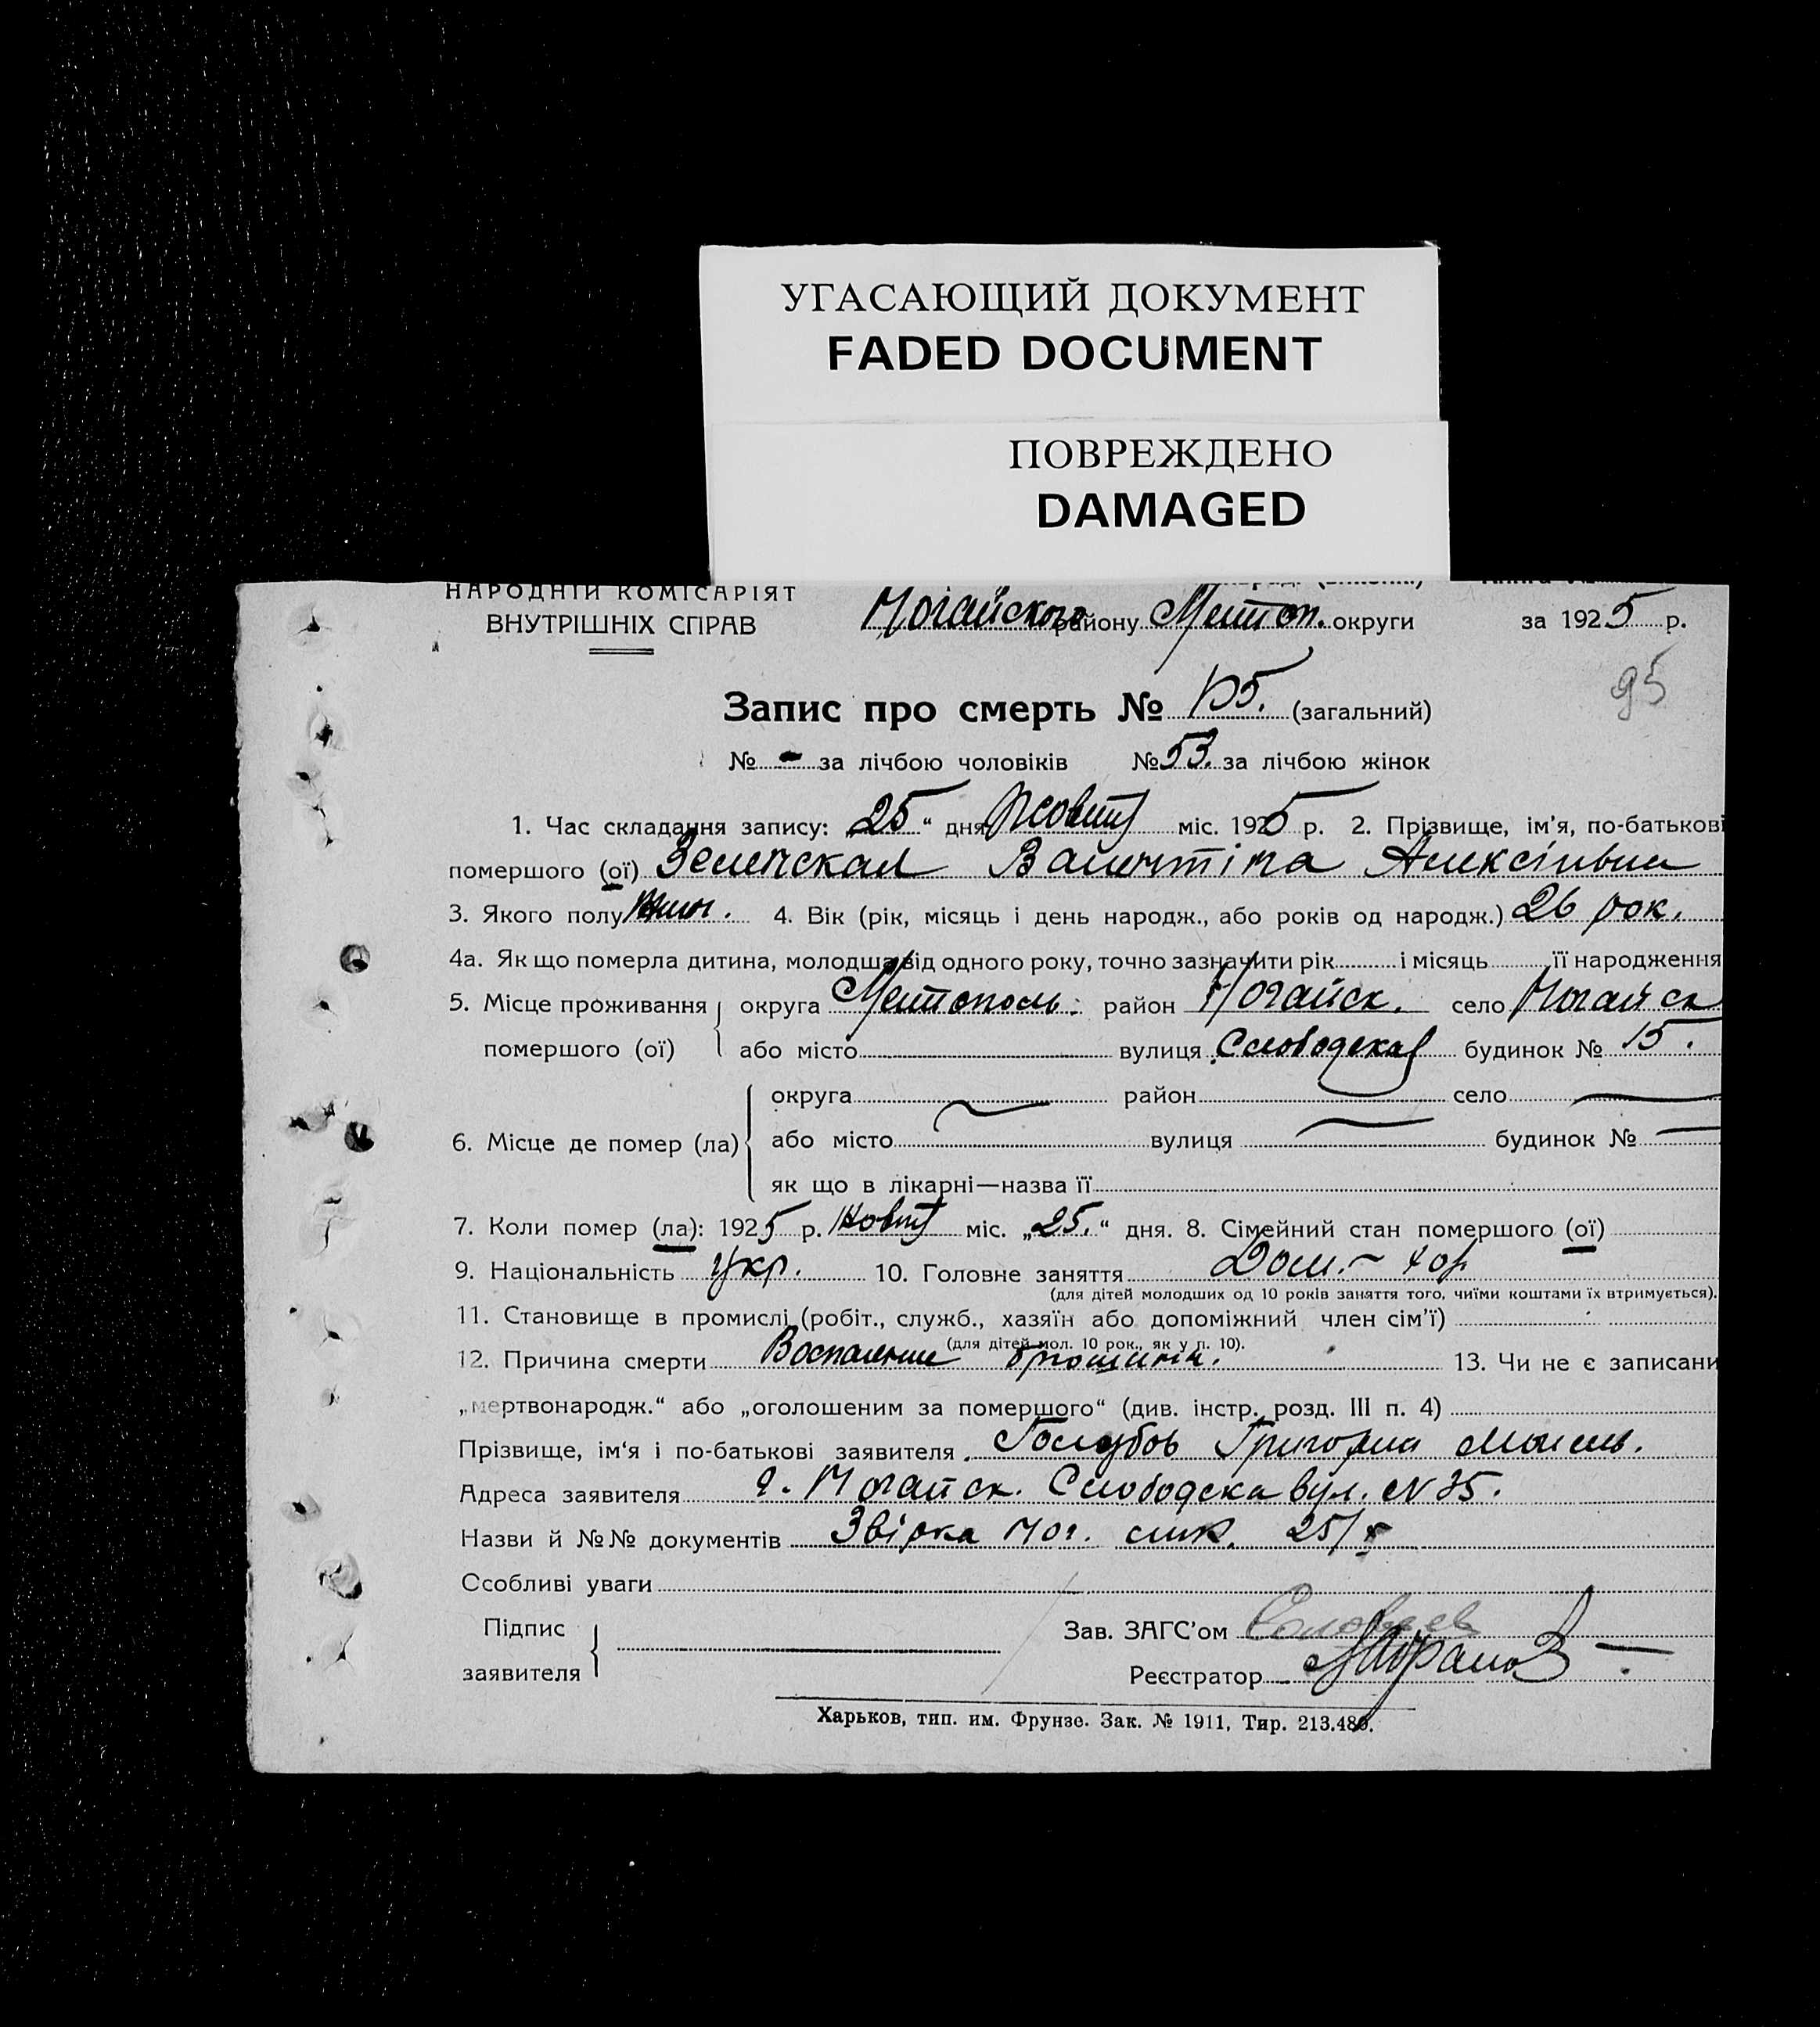 УГАСАЮЩИЙ ДОКУМЕНТ
FADED DOCUMENT
ПОВРЕЖДЕНО
DAMAGED
НАРОДНІЙ КОМІСАРІЯТ
ВНУТРІШНІХ СПРАВ
Ногайского району Мелітоп. округи за 1925 р.
95
Запис про смерть № 105. (загальний)
№ - за лічбою чоловіків № 53. за лічбою жінок
1. Час складання запису: „25“ дня Жовт міс. 1925 р. 2. Прізвище, ім'я, по-батькові
помершого (ої) Зеленская Валентіна Алексівна
3. Якого полу жін. 4. Вік (рік, місяць і день народж., або років од народж.) 26 рок.
4а. Як що померла дитина, молодша від одного року, точно зазначити рік і місяць її народження
5. Місце проживання округа Мелітополь. район Ногайск. село Ногайск
помершого (ої) або місто вулиця Слободска будинок № 15.
округа район село
6. Місце де помер (ла) або місто вулиця будинок №
як що в лікарні—назва її
7. Коли помер (ла): 1925 р. Жовт міс. „25.“ дня. 8. Сімейний стан помершого (ої)
9. Національність укр. 10. Головне заняття Дом.
(для дітей молодших од 10 років заняття того, чиїми коштами їх втримується).
11. Становище в промислі (робіт., служб., хазяїн або допоміжний член сім'ї)
(для дітей мол. 10 рок., як у п. 10).
12. Причина смерти Воспаление брюшины. 13. Чи не є записани
„мертвонародж.“ або „оголошеним за помершого“ (див. інстр. розд. III п. 4)
Прізвище, ім'я і по-батькові заявителя Голубов Григорий Моисев.
Адреса заявителя г. Ногайск. Слободска вул. N 35.
Назви й №№ документів Звірка Ног. 25/X
Ссобливі уваги
Підпис Зав. ЗАГС'ом
заявителя Реєстратор
Харьков, тип. им. Фрунзе. Зак. № 1911, Тир. 213.480.